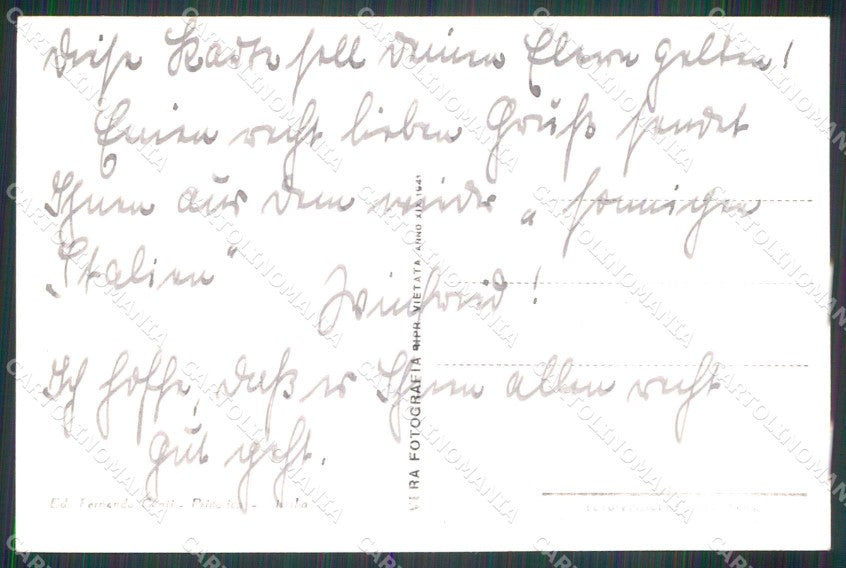 Diese Karte soll Deinen Eltern gelten!
Einen recht lieben Gruß sendet
Ihnen aus dem „sonnigen
Italien"
Winfried!
Ich hoffe, daß es Ihnen allen recht
gut geht.
VERA FOTOGRAFIA RIPR. VIETATA ANNO XIX 1941
Ed. Fernando
CARTOLINOMANIA